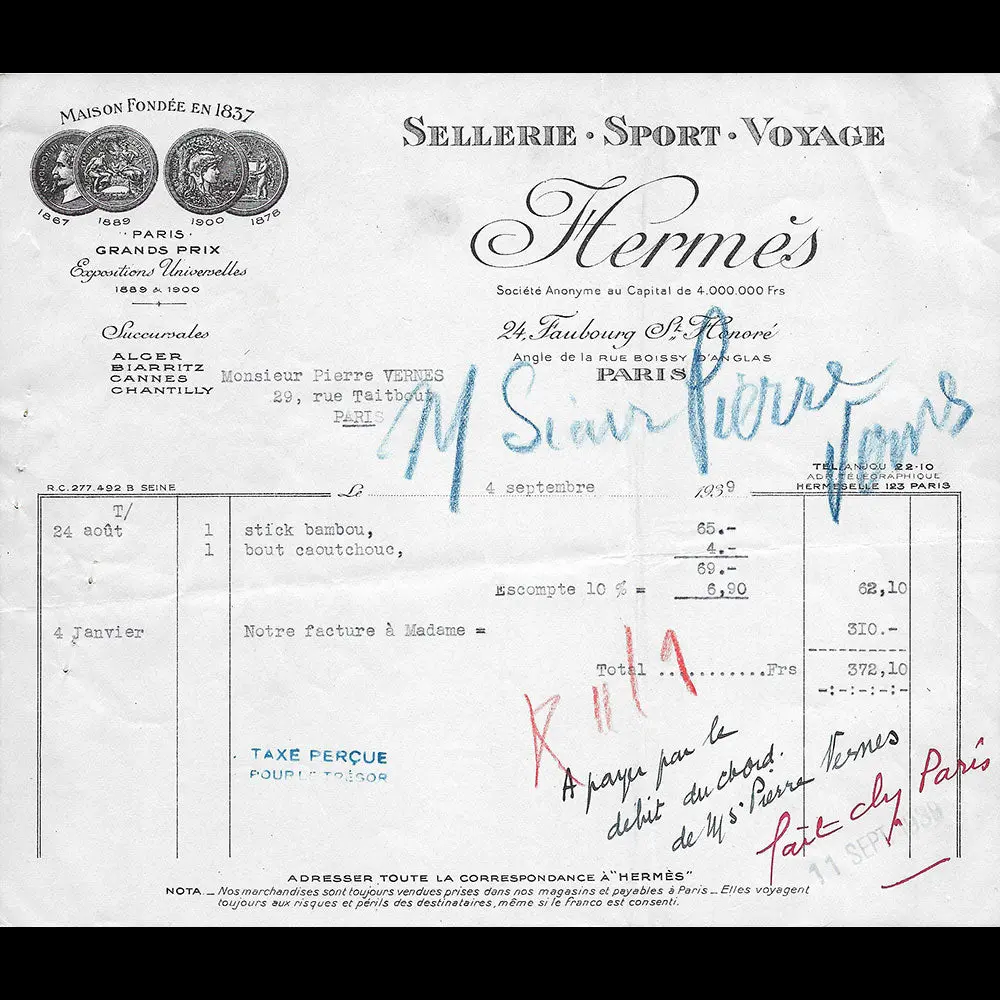 MAISON FONDÉE EN 1837
1867 1889 1900 1878
· PARIS ·
GRANDS PRIX
Expositions Universelles
1889 & 1900
Succursales
ALGER
BIARRITZ
CANNES
CHANTILLY
SELLERIE · SPORT · VOYAGE
Hermès
Société Anonyme au Capital de 4.000.000 Frs
24, Faubourg St Honoré
Angle de la RUE BOISSY D'ANGLAS
PARIS
Monsieur Pierre VERNES
29, rue Taitbout
PARIS
M Sieur Pierre
Vernes
TEL. ANJOU 22-10
ADR. TÉLÉGRAPHIQUE
HERMESELLE 123 PARIS
R.C. 277.492 B SEINE
Le 4 septembre 1939
T/
24 août 1 stick bambou, 65.-
1 bout caoutchouc, 4.-
69.-
Escompte 10 % = 6,90 62,10
4 Janvier Notre facture à Madame = 310.-
Total ...........Frs 372,10
K 11/9
TAXE PERÇUE
POUR LE TRÉSOR
A payer par le
débit du
de Mr Pierre Vernes
fait Paris
11 SEPT 1939
ADRESSER TOUTE LA CORRESPONDANCE À "HERMÈS"
NOTA. _ Nos marchandises sont toujours vendues prises dans nos magasins et payables à Paris _ Elles voyagent
toujours aux risques et périls des destinataires, même si le franco est consenti.